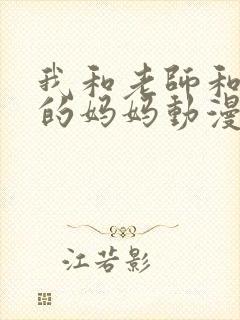 我和老師和
的妈妈動漫
江若影